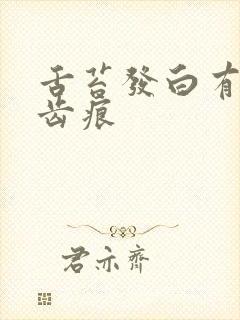 舌苔發白有
齿痕
君亦齊